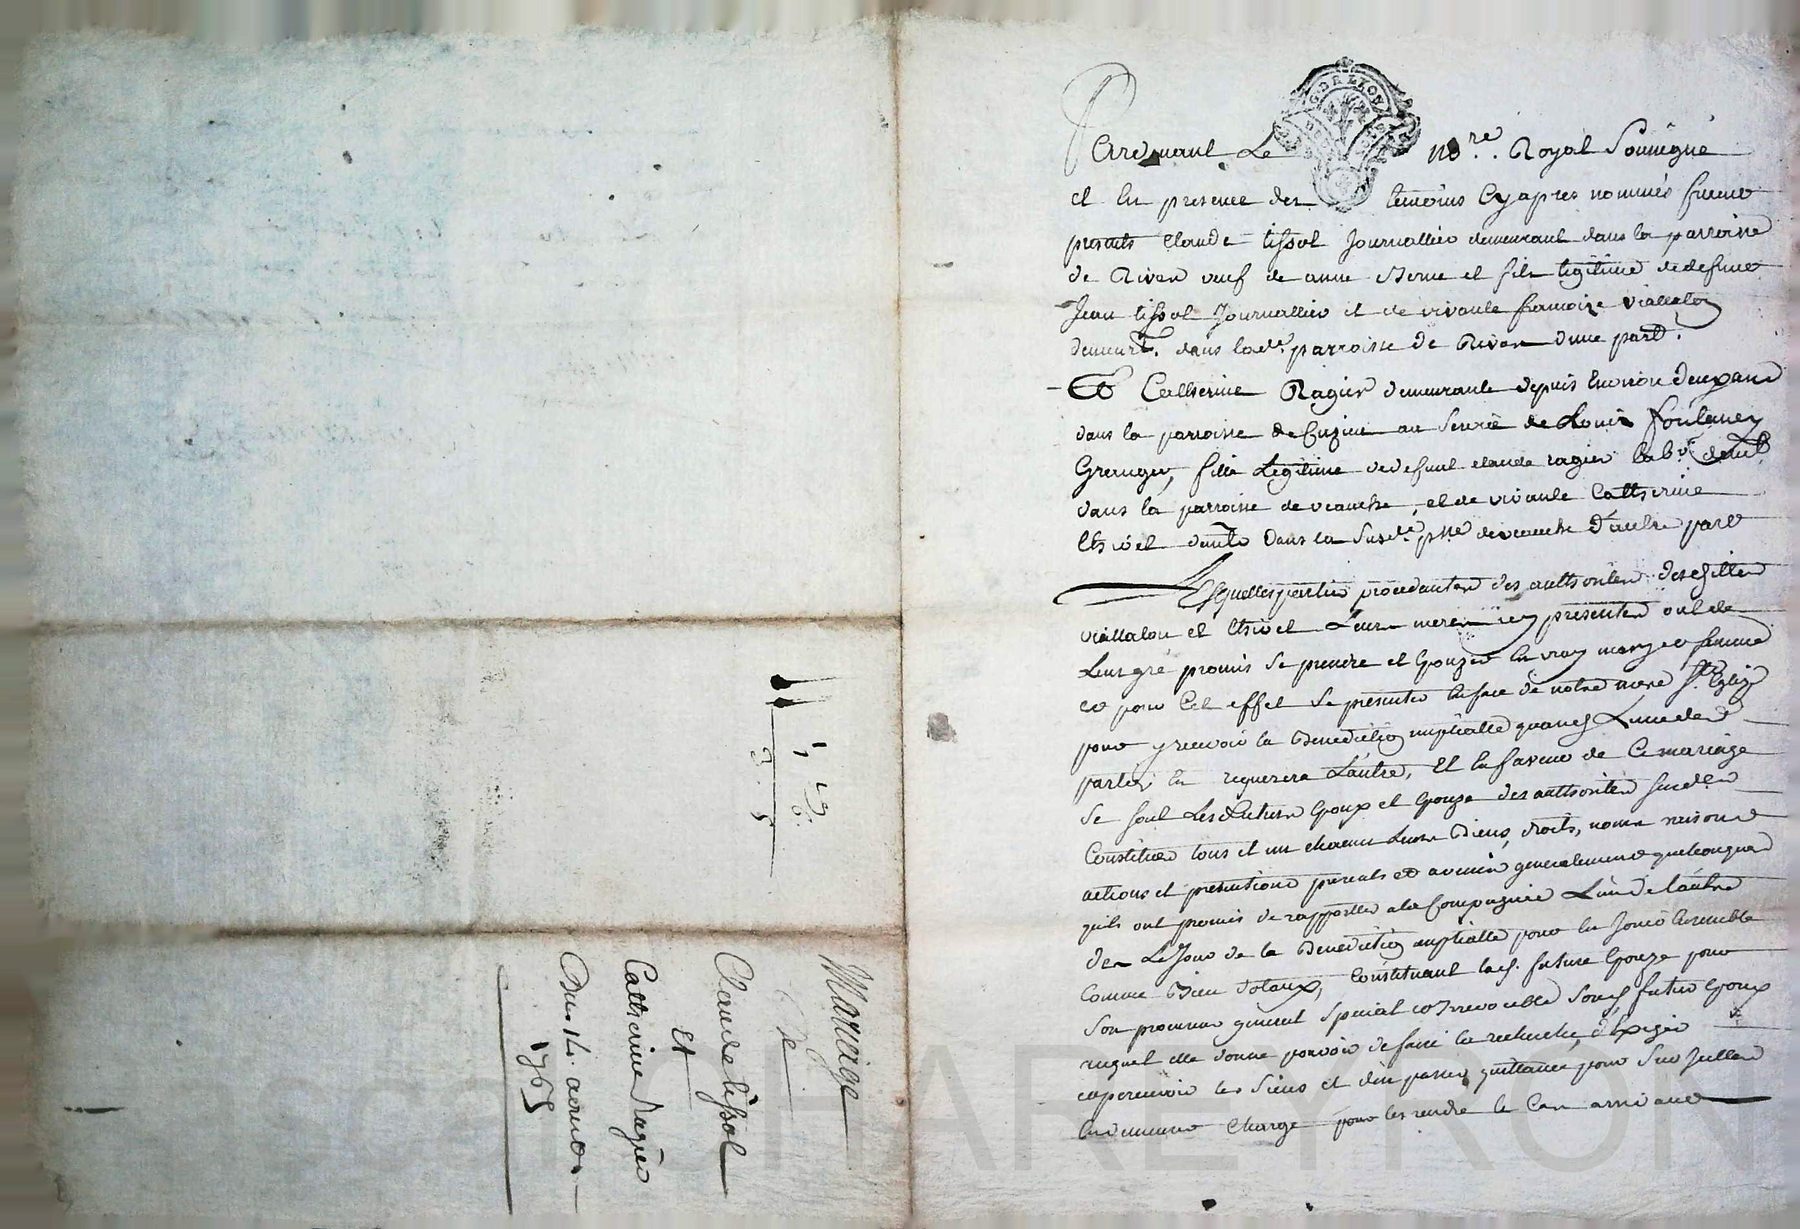 Pardevant Le no.re Royal Soussigné
et En presence des temoins Cyapres nommés furent
presents Claude tissot Journallier demeurant dans la parroisse
de Rivas veuf de anne et fils legitime de defunt
Jean tissot Journallier et de vivante francoise viallaton
demeurt. dans lade. parroisse de Rivas d'une part.
Et Catherine Ragier demeurante depuis Environ deux ans
dans la parroisse de Cuzieu au Service de Louis fontaney
Granger, fille Legitime de defunt claude ragier lab.r demt
dans la parroisse de veauche, et de vivante Catherine
demte Dans la Susde. psse de veauche D'autre part
Lesquelles parties procedantes des authorités desdittes
viallaton et Leurs meres icy presentes ont de
Leur gré promis Se prendre et Epouzer En vray maryet femme
et pour Cet effet Se presenter En face de notre mere Ste Eglize
pour y recevoir la Benediction nuptialle quand Lune des
parties En requerera L'autre, Et En faveur de Ce mariage
Se sont Les futurs Epoux et Epouze des authorités susdes
Constitués tous et un chacun Leurs Biens, droits, noms raisons
actions et pretentions presents et avenir generalement quelconques
qu'ils ont promis de rapporter a la Compagnie L'un de l'autre
des Le Jour de la Benediction nuptialle pour En Jouir Ensemble
Comme Bien dotaux, Constituant lad. future Epouze pour
Son procureur general Special et Irrevocable Sond futur Epoux
auquel elle donne pouvoir de faire la recherche, d'Exiger
et percevoir les Siens et d'en passer quittance pour Sur Iceux
demeurer Chargé pour les rendre le Cas arrivant
Mariage
De
Claude tissot
Et
Catherine Ragier
Du 14. aoust
1765
CHAREYRON